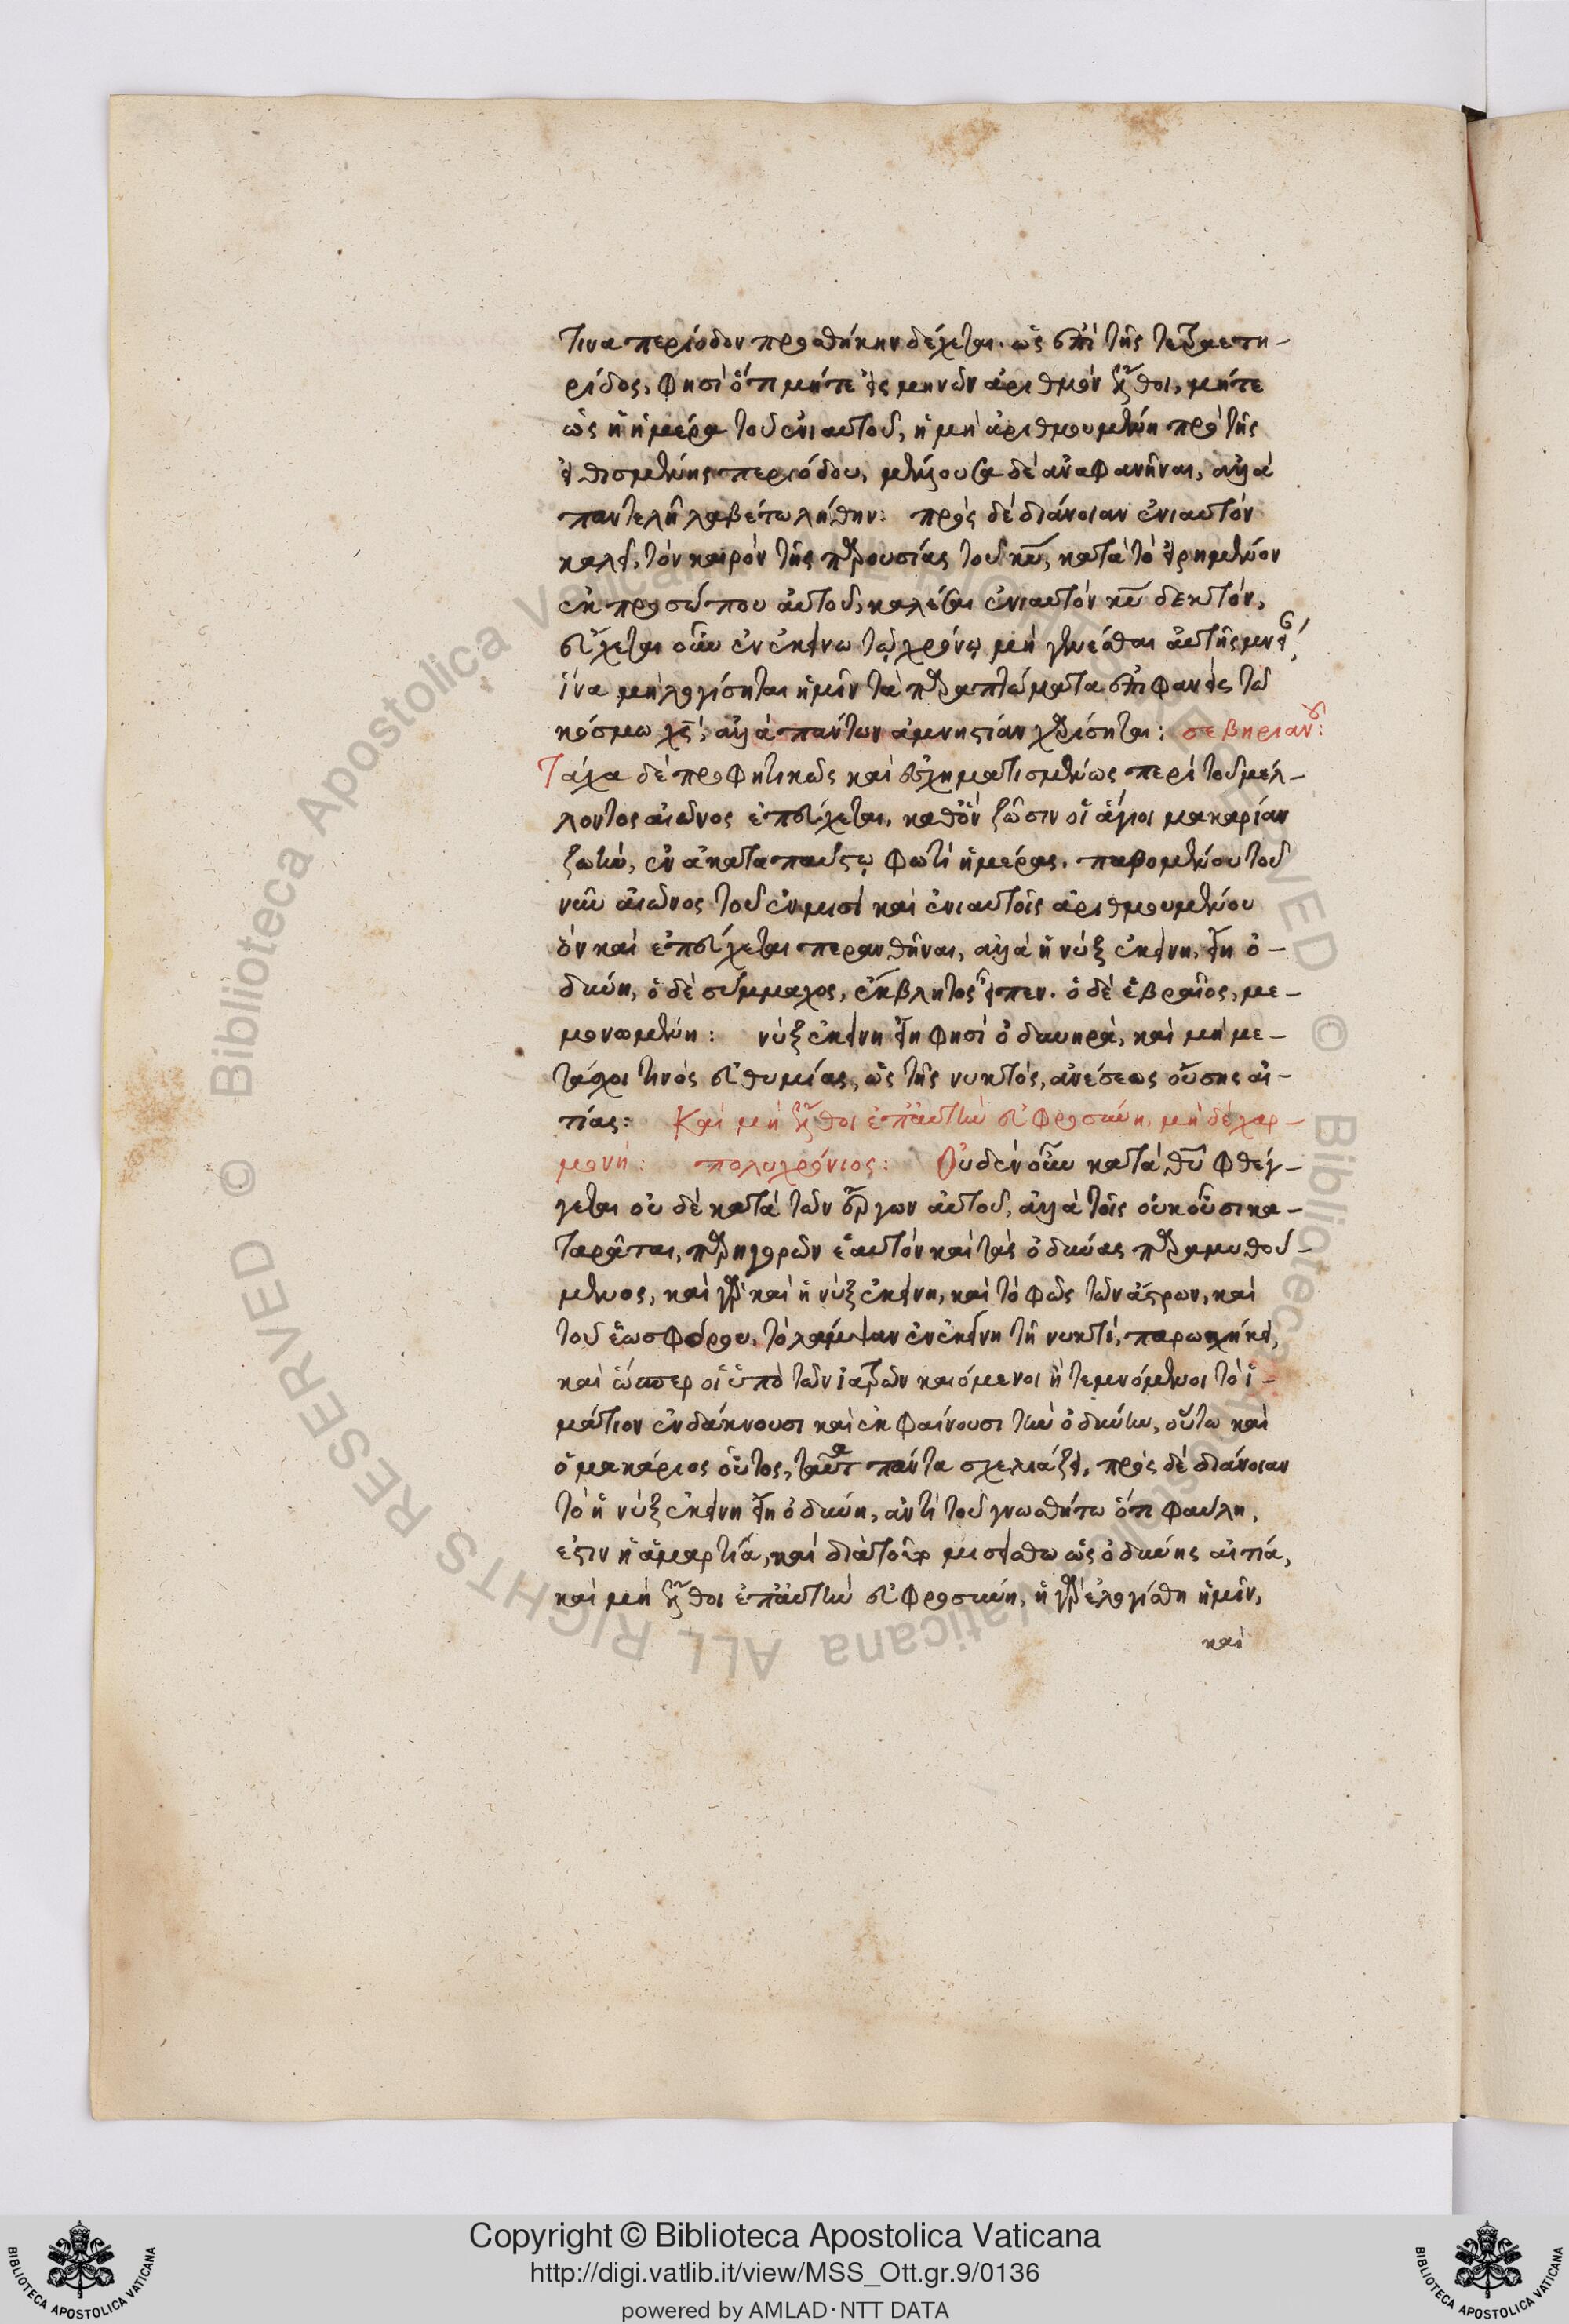 τινα περίοδον προσθήκην δέχεται. ὡς ἐπὶ τῆς τετραετη-
ρίδος, φησὶ ὅτι μήτε εἰς μηνῶν ἀριθμὸν ἔλθοι, μήτε
ὡς ἡ ἡμέρα τοῦ ἐνιαυτοῦ, ἡ μὴ ἀριθμουμένη πρὸ τῆς
εἰθισμένης περιόδου, μέλλουσα δὲ ἀναφανῆναι, ἀλλὰ
παντελῆ λαβέτω λήθην: πρὸς δὲ διάνοιαν ἐνιαυτὸν
καλεῖ, τὸν καιρὸν τῆς παρουσίας τοῦ κυ, κατὰ τὸ εἰρημένον
ἐκ προσώπου αὐτοῦ, καλέσαι ἐνιαυτὸν κυ δεκτόν,
εὔχεται οὖν ἐν ἐκείνω τῷ χρόνῳ μὴ γενέσθαι αὐτῆς
ἵνα μὴ λογίσηται ἡμῖν τὰ παραπτώματα ἐπιφανεὶς τῶ
κόσμω χς, ἀλλὰ πάντων ἀμνηστίαν χαρίσηται: σεβηριανοῦ:
Τάχα δὲ προφητικῶς καὶ ἐσχηματισμένως περὶ τοῦ μέλ-
λοντος αἰῶνος ἐπεύχεται, καθ' ὃν ζῶσιν οἱ ἅγιοι μακαρίαν
ζωὴν, ἐν ἀκαταπαύστῳ φωτὶ ἡμέρας. παυομένου τοῦ
νῦν αἰῶνος τοῦ ἐν μησὶ καὶ ἐνιαυτοῖς ἀριθμουμένου
ὃν καὶ ἐπεύχεται περανθῆναι, ἀλλὰ ἡ νὺξ ἐκείνη, εἴη ὀ-
δύνη, ὁ δὲ σύμμαχος, ἔκβλητος εἶπεν. ὁ δὲ ἑβραῖος, με-
μονωμένη: νὺξ ἐκείνη εἴη φησὶ ὀδυνηρὰ, καὶ μὴ με-
τάσχοι τινὸς εὐθυμίας, ὡς τῆς νυκτὸς, ἀνέσεως οὔσης αἰ-
τίας: Καὶ μὴ ἔλθοι ἐπ' αὐτὴν εὐφροσύνη, μὴ δὲ χαρ-
μονή: πολυχρόνιος: Οὐδὲν οὖν κατὰ θυ φθέγ-
γεται οὐδὲ κατὰ τῶν ἔργων αὐτοῦ, ἀλλὰ τοῖς οὐκ οὖσι κα-
ταρᾶται, παρηγορῶν ἑαυτὸν καὶ τὰς ὀδύνας παραμυθού-
μενος, καὶ γὰρ καὶ ἡ νὺξ ἐκείνη, καὶ τὸ φῶς τῶν ἄστρων, καὶ
τοῦ ἑωσφόρου, τὸ λάμψαν ἐν ἐκείνη τῆ νυκτὶ, παρωχήκει,
καὶ ὥσπερ οἱ ὑπὸ τῶν ἰατρῶν καιόμενοι ἢ τεμνόμενοι τὸ ἱ-
μάτιον ἐνδάκνουσι καὶ ἐκφαίνουσι τὴν ὀδύνην, οὕτω καὶ
ὁ μακάριος οὗτος, ταῦτα πάντα σχετλιάζει, πρὸς δὲ διάνοιαν
τὸ ἡ νὺξ ἐκείνη εἴη ὀδύνη, ἀντὶ τοῦ γνωσθήτω ὅτι φαύλη,
ἐστιν ἡ ἁμαρτία, καὶ διὰ τοῦτο μισείσθω ὡς ὀδύνης αἰτία,
καὶ μὴ ἔλθοι ἐπ' αὐτὴν εὐφροσύνη, ἡ γὰρ ἐλογίσθη ἡμῖν,
καὶ
Copyright © Biblioteca Apostolica Vaticana
http://digi.vatlib.it/view/MSS_Ott.gr.9/0136
powered by AMLAD·NTT DATA
BIBLIOTECA APOSTOLICA VATICANA
BIBLIOTECA APOSTOLICA VATICANA
© Biblioteca Apostolica Vaticana ALL RIGHTS RESERVED